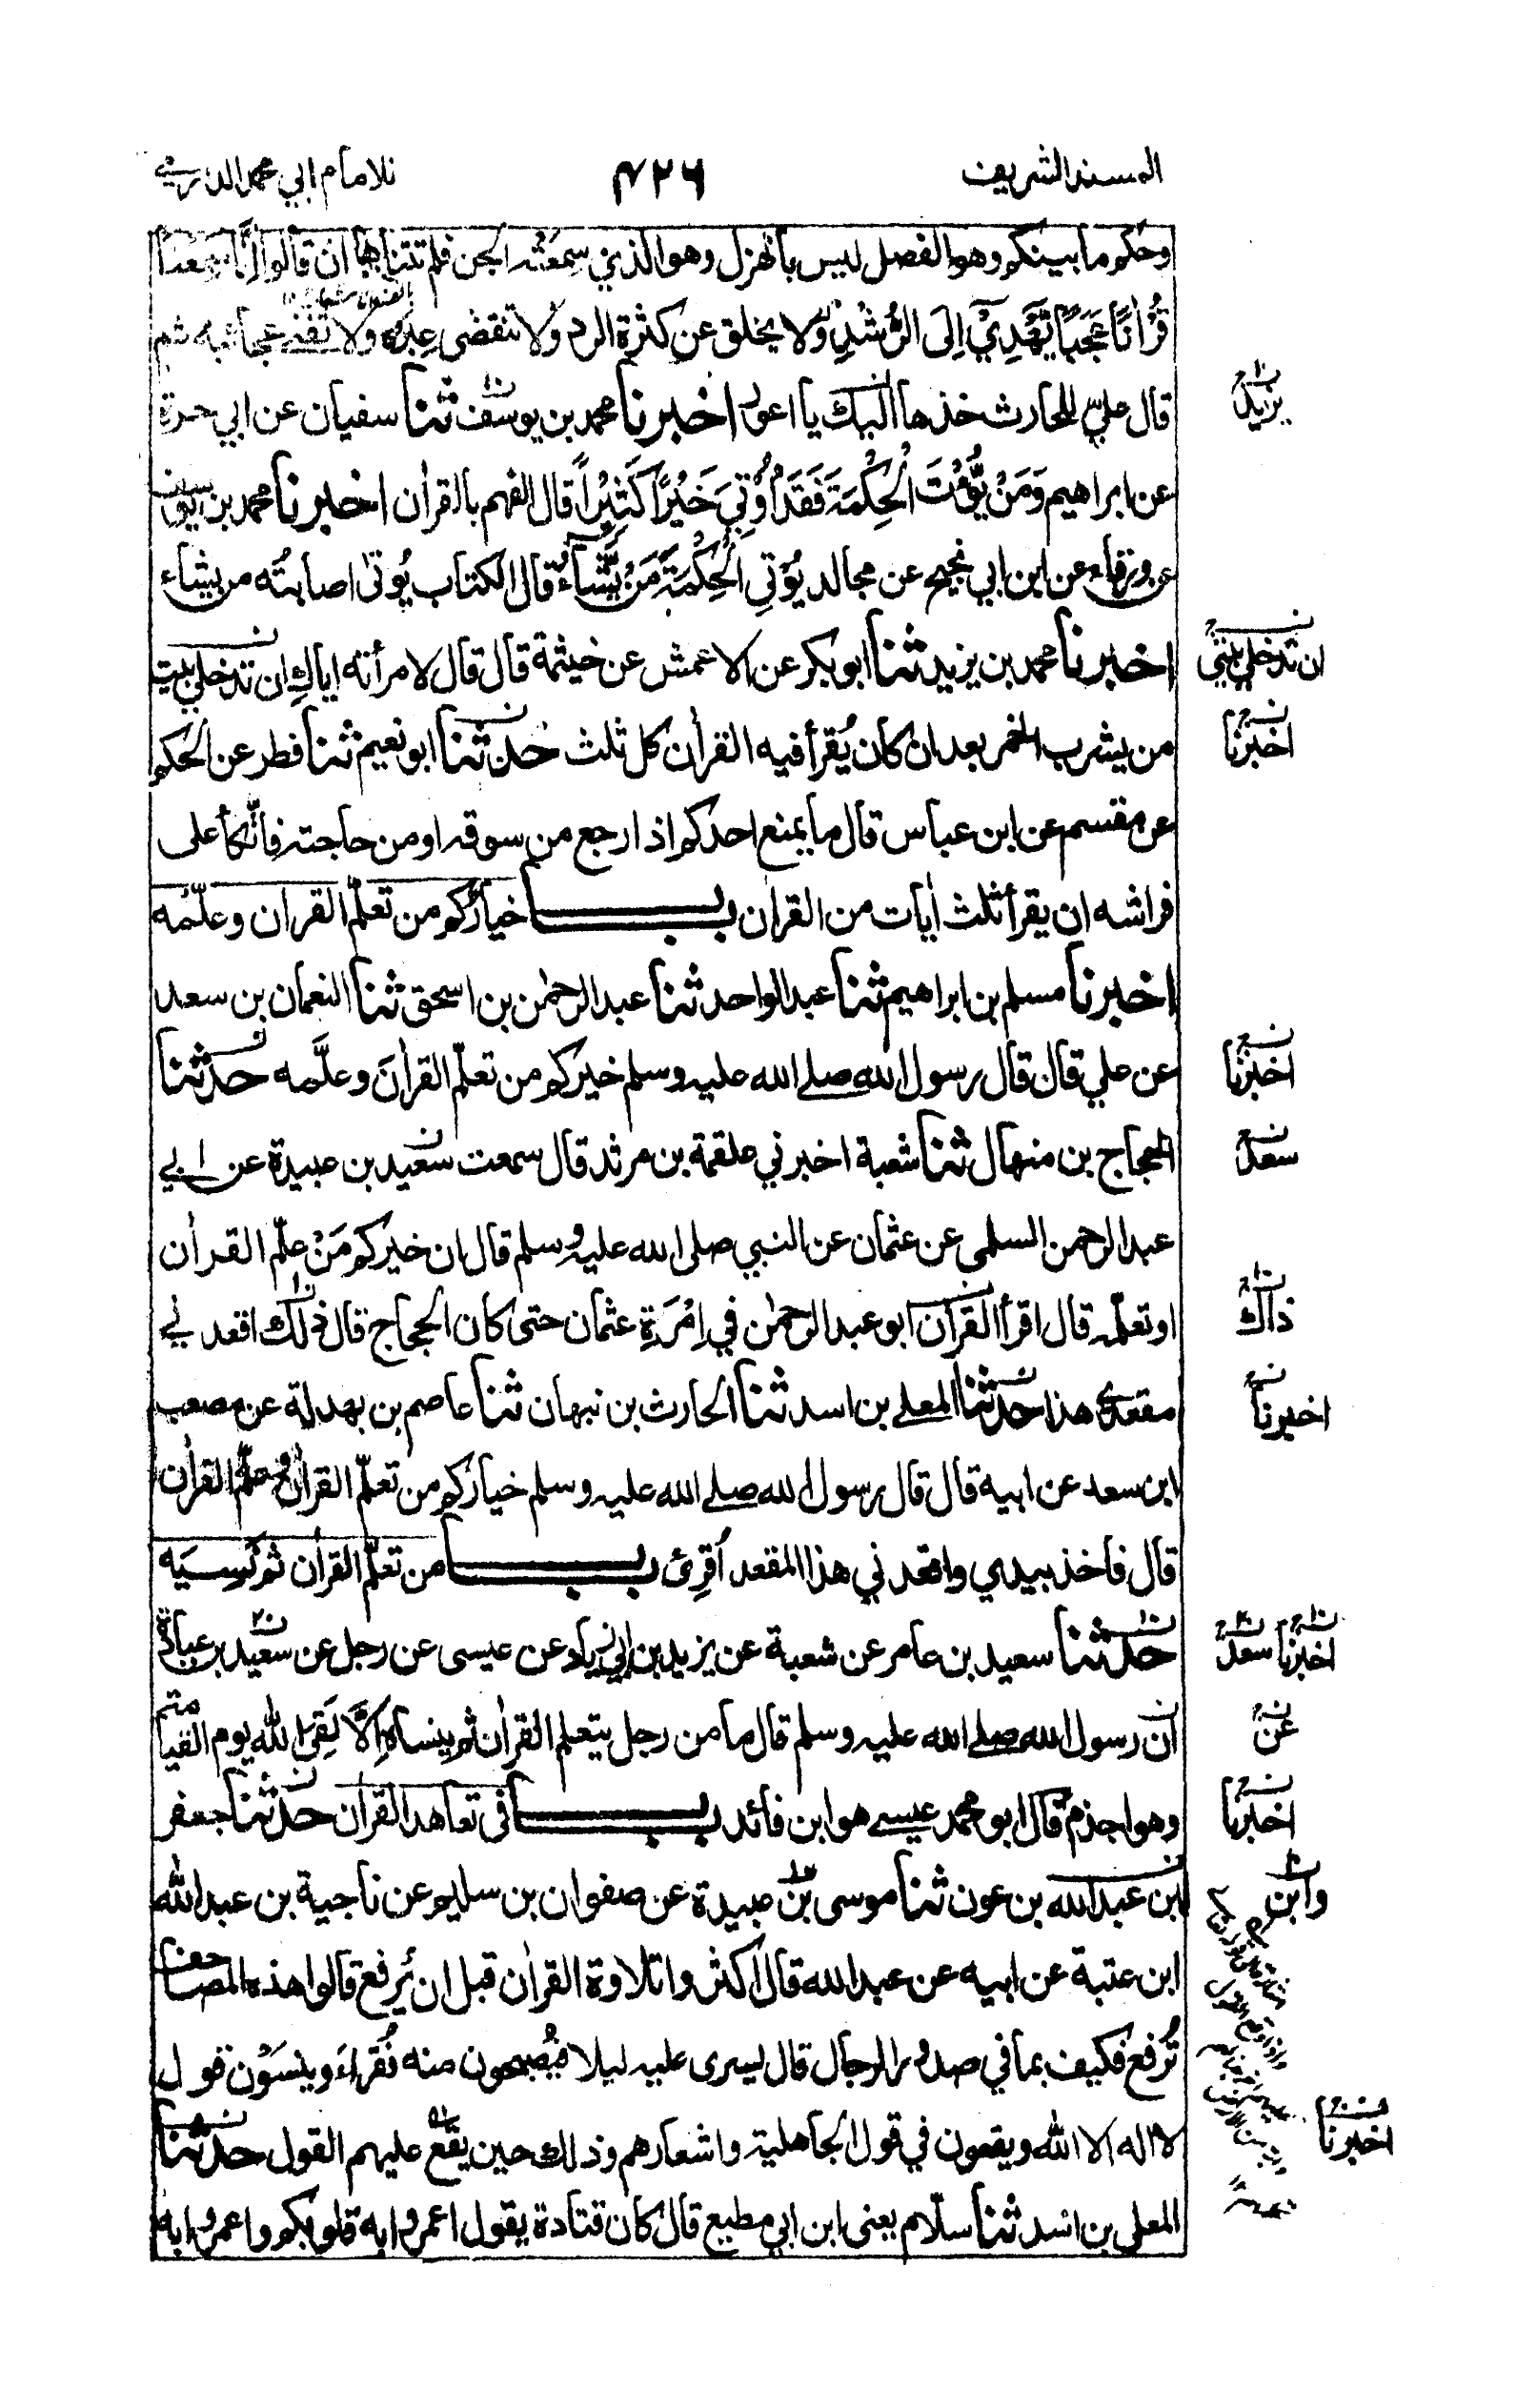 المسند الشريف ۴۲۶ للامام ابي محمد الدارمي
وحكم ما بينكم وهو الفصل ليس بالهزل وهو الذي سمعته الجن فلم تتناها ان قالوا اِنَّا سَمِعْنَا
قُرْاٰنًا عَجَبًا يَّهْدِيْٓ اِلَى الرُّشْدِ ولا يخلق عن كثرة الرد ولا تنقضي عِبَرُه ولا تفنى عجائبه ثم
قال علي للحارث خذها اليك يا اعور اخبرنا محمد بن يوسف ثنا سفيان عن ابي حمزة
يزيد
عن ابراهيم وَمَنْ يُّؤْتَ الْحِكْمَةَ فَقَدْ اُوْتِيَ خَيْرًا كَثِيْرًا قال الفهم بالقراٰن اخبرنا محمد بن يوسف
عن ورقاء عن ابن ابي نجيح عن مجاهد يُؤتِي الْحِكْمَةَ مَنْ يَّشَآءُ قال الكتاب يُوتىٰ اصابته من يشاء
اخبرنا محمد بن يزيد ثنا ابو بكر عن الاعمش عن خيثمة قال قال لامرأته اياكِ ان تدخلي بيت
ان تدخلي بيتي
من يشرب الخمر بعد ان كان يُقرأ فيه القراٰن كل ثلث حدثنا ابو نعيم ثنا فطر عن الحكم
اخبرنا
عن مقسم عن ابن عباس قال ما يمنع احدكم اذا رجع من سوقه او من حاجته فاتّكأ على
فراشه ان يقرأ ثلث اٰيات من القراٰن باب خياركم من تعلّم القراٰن وعلّمه
اخبرنا مسلم بن ابراهيم ثنا عبد الواحد ثنا عبد الرحمٰن بن اسحق ثنا النعمان بن سعد
عن علي قال قال رسول الله صلى الله عليه وسلم خيركم من تعلّم القراٰنَ وعلَّمه حدثنا
اخبرنا
الحجاج بن منهال ثنا شعبة اخبرني علقمة بن مرثد قال سمعت سعيد بن عبيدة عن ابي
سعد
عبد الرحمن السلمي عن عثمان عن النبي صلى الله عليه وسلم قال ان خيركم مَنْ علّم القراٰن
او تعلّمه قال اقرأ القراٰن ابو عبد الرحمٰن في اِمْرَةِ عثمان حتى كان الحجاج قال ذلك اقعدني
ذاك
مقعدي هذا حدثنا المعلى بن اسد ثنا الحارث بن نبهان ثنا عاصم بن بهدلة عن مصعب
اخبرنا
ابن سعد عن ابيه قال قال رسول الله صلى الله عليه وسلم خياركم من تعلّم القراٰن وعلّم القراٰن
قال فاخذ بيدي واقعدني هذا المقعد اُقرِئ باب من تعلّم القراٰن ثم نَسِيَه
حدثنا سعيد بن عامر عن شعبة عن يزيد بن ابي زياد عن عيسى عن رجل عن سعيد بن عبادة
اخبرنا سعد
ان رسول الله صلى الله عليه وسلم قال ما من رجل يتعلم القراٰن ثم ينساه اِلَّا لَقِيَ الله يوم القيامة
عن
وهو اجذم قال ابو محمد عيسى هو ابن فائد باب في تعاهد القراٰن حدثنا جعفر
اخبرنا
ابن عبد الله بن عون ثنا موسى بن عبيدة عن صفوان بن سليم عن ناجية بن عبد الله
وابن
ابن عتبة عن ابيه عن عبد الله قال اكثروا تلاوة القراٰن قبل ان يُرفع قالوا هذه المصاحف
تُرفع فكيف بما في صدور الرجال قال ليسرى عليه ليلا فيُصبحون منه فُقراء وينسَوْن قول
لا اله الا الله ويقعون في قول الجاهلية واشعارهم وذلك حين يقع عليهم القول حدثنا
اخبرنا
المعلى بن اسد ثنا سلّام يعني ابن ابي مطيع قال كان قتادة يقول اعمروا به قلوبكم واعمروا به